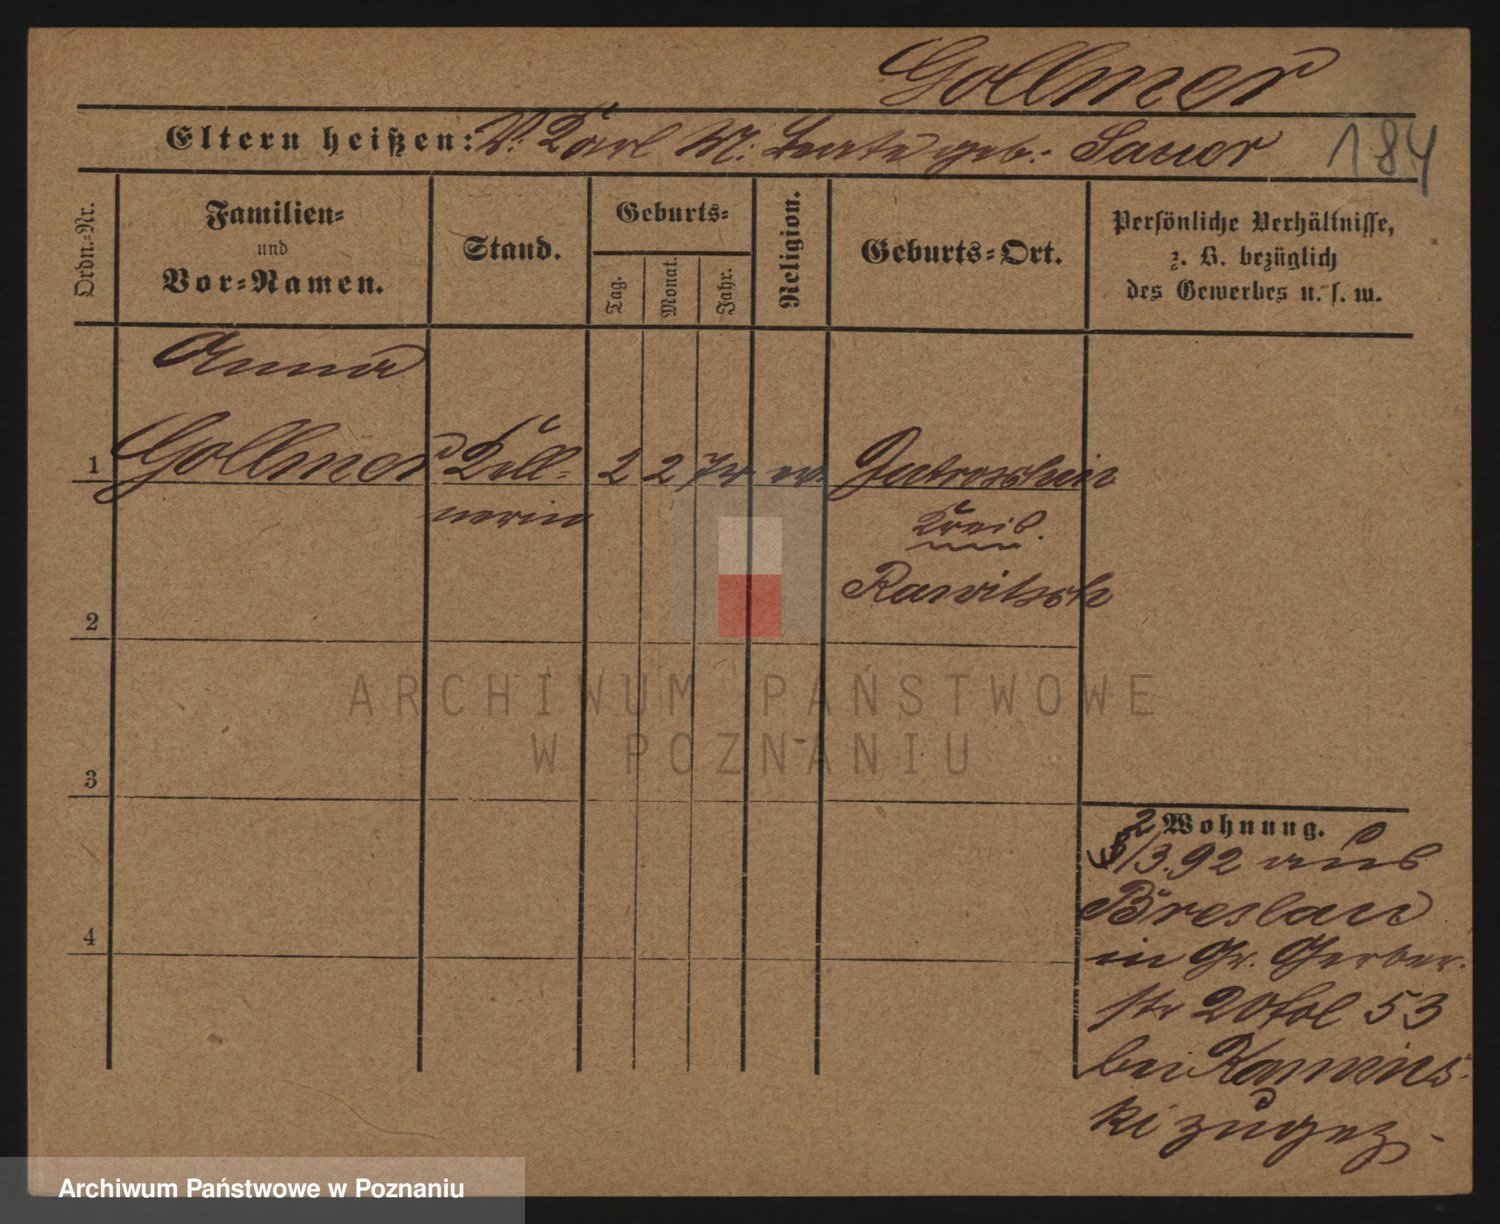 Gollmer
Eltern heißen: V. Karl M. Beate geb. Sauer
184
Ordn.-Nr.
Familien-
und
Vor-Namen.
Stand.
Geburts-
Tag.
Monat.
Jahr.
Religion.
Geburts-Ort.
Persönliche Verhältnisse,
z. B. bezüglich
des Gewerbes u. s. w.
Anna
1 Gollmer Kell- 2 2 74 ev. Jutroschin
nerin Kreis.
Rawitsch
2
3
4
Wohnung.
2/3.92 aus
Breslau
in Gr. Gerber-
str 20 fol 53
bei Kamins-
ki zugez.
ARCHIWUM PAŃSTWOWE
W POZNANIU
Archiwum Państwowe w Poznaniu